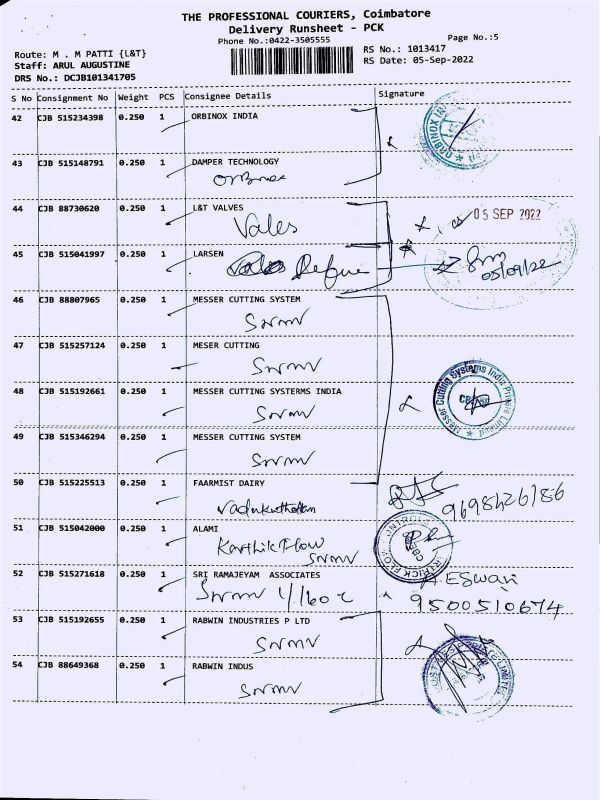 THE PROFESSIONAL COURIERS, Coimbatore
Delivery Runsheet - PCK
Phone No.:0422-3505555
Page No.:5
Route: M . M PATTI {L&T}
RS No.: 1013417
Staff: ARUL AUGUSTINE
RS Date: 05-Sep-2022
DRS No.: DCJB101341705
S No Consignment No Weight PCS Consignee Details Signature
42 CJB 515234398 0.250 1 ORBINOX INDIA
43 CJB 515148791 0.250 1 DAMPER TECHNOLOGY
44 CJB 88730620 0.250 1 L&T VALVES
Vales
05 SEP 2022
45 CJB 515041997 0.250 1 LARSEN
05/09/22
46 CJB 88807965 0.250 1 MESSER CUTTING SYSTEM
47 CJB 515257124 0.250 1 MESER CUTTING
48 CJB 515192661 0.250 1 MESSER CUTTING SYSTERMS INDIA
Messer Cutting Systems India Private Limited
49 CJB 515346294 0.250 1 MESSER CUTTING SYSTEM
50 CJB 515225513 0.250 1 FAARMIST DAIRY
9698426186
51 CJB 515042000 0.250 1 ALAMI
Karthik Flow
52 CJB 515271618 0.250 1 SRI RAMAJEYAM ASSOCIATES
A. ESwari
9500510674
53 CJB 515192655 0.250 1 RABWIN INDUSTRIES P LTD
54 CJB 88649368 0.250 1 RABWIN INDUS